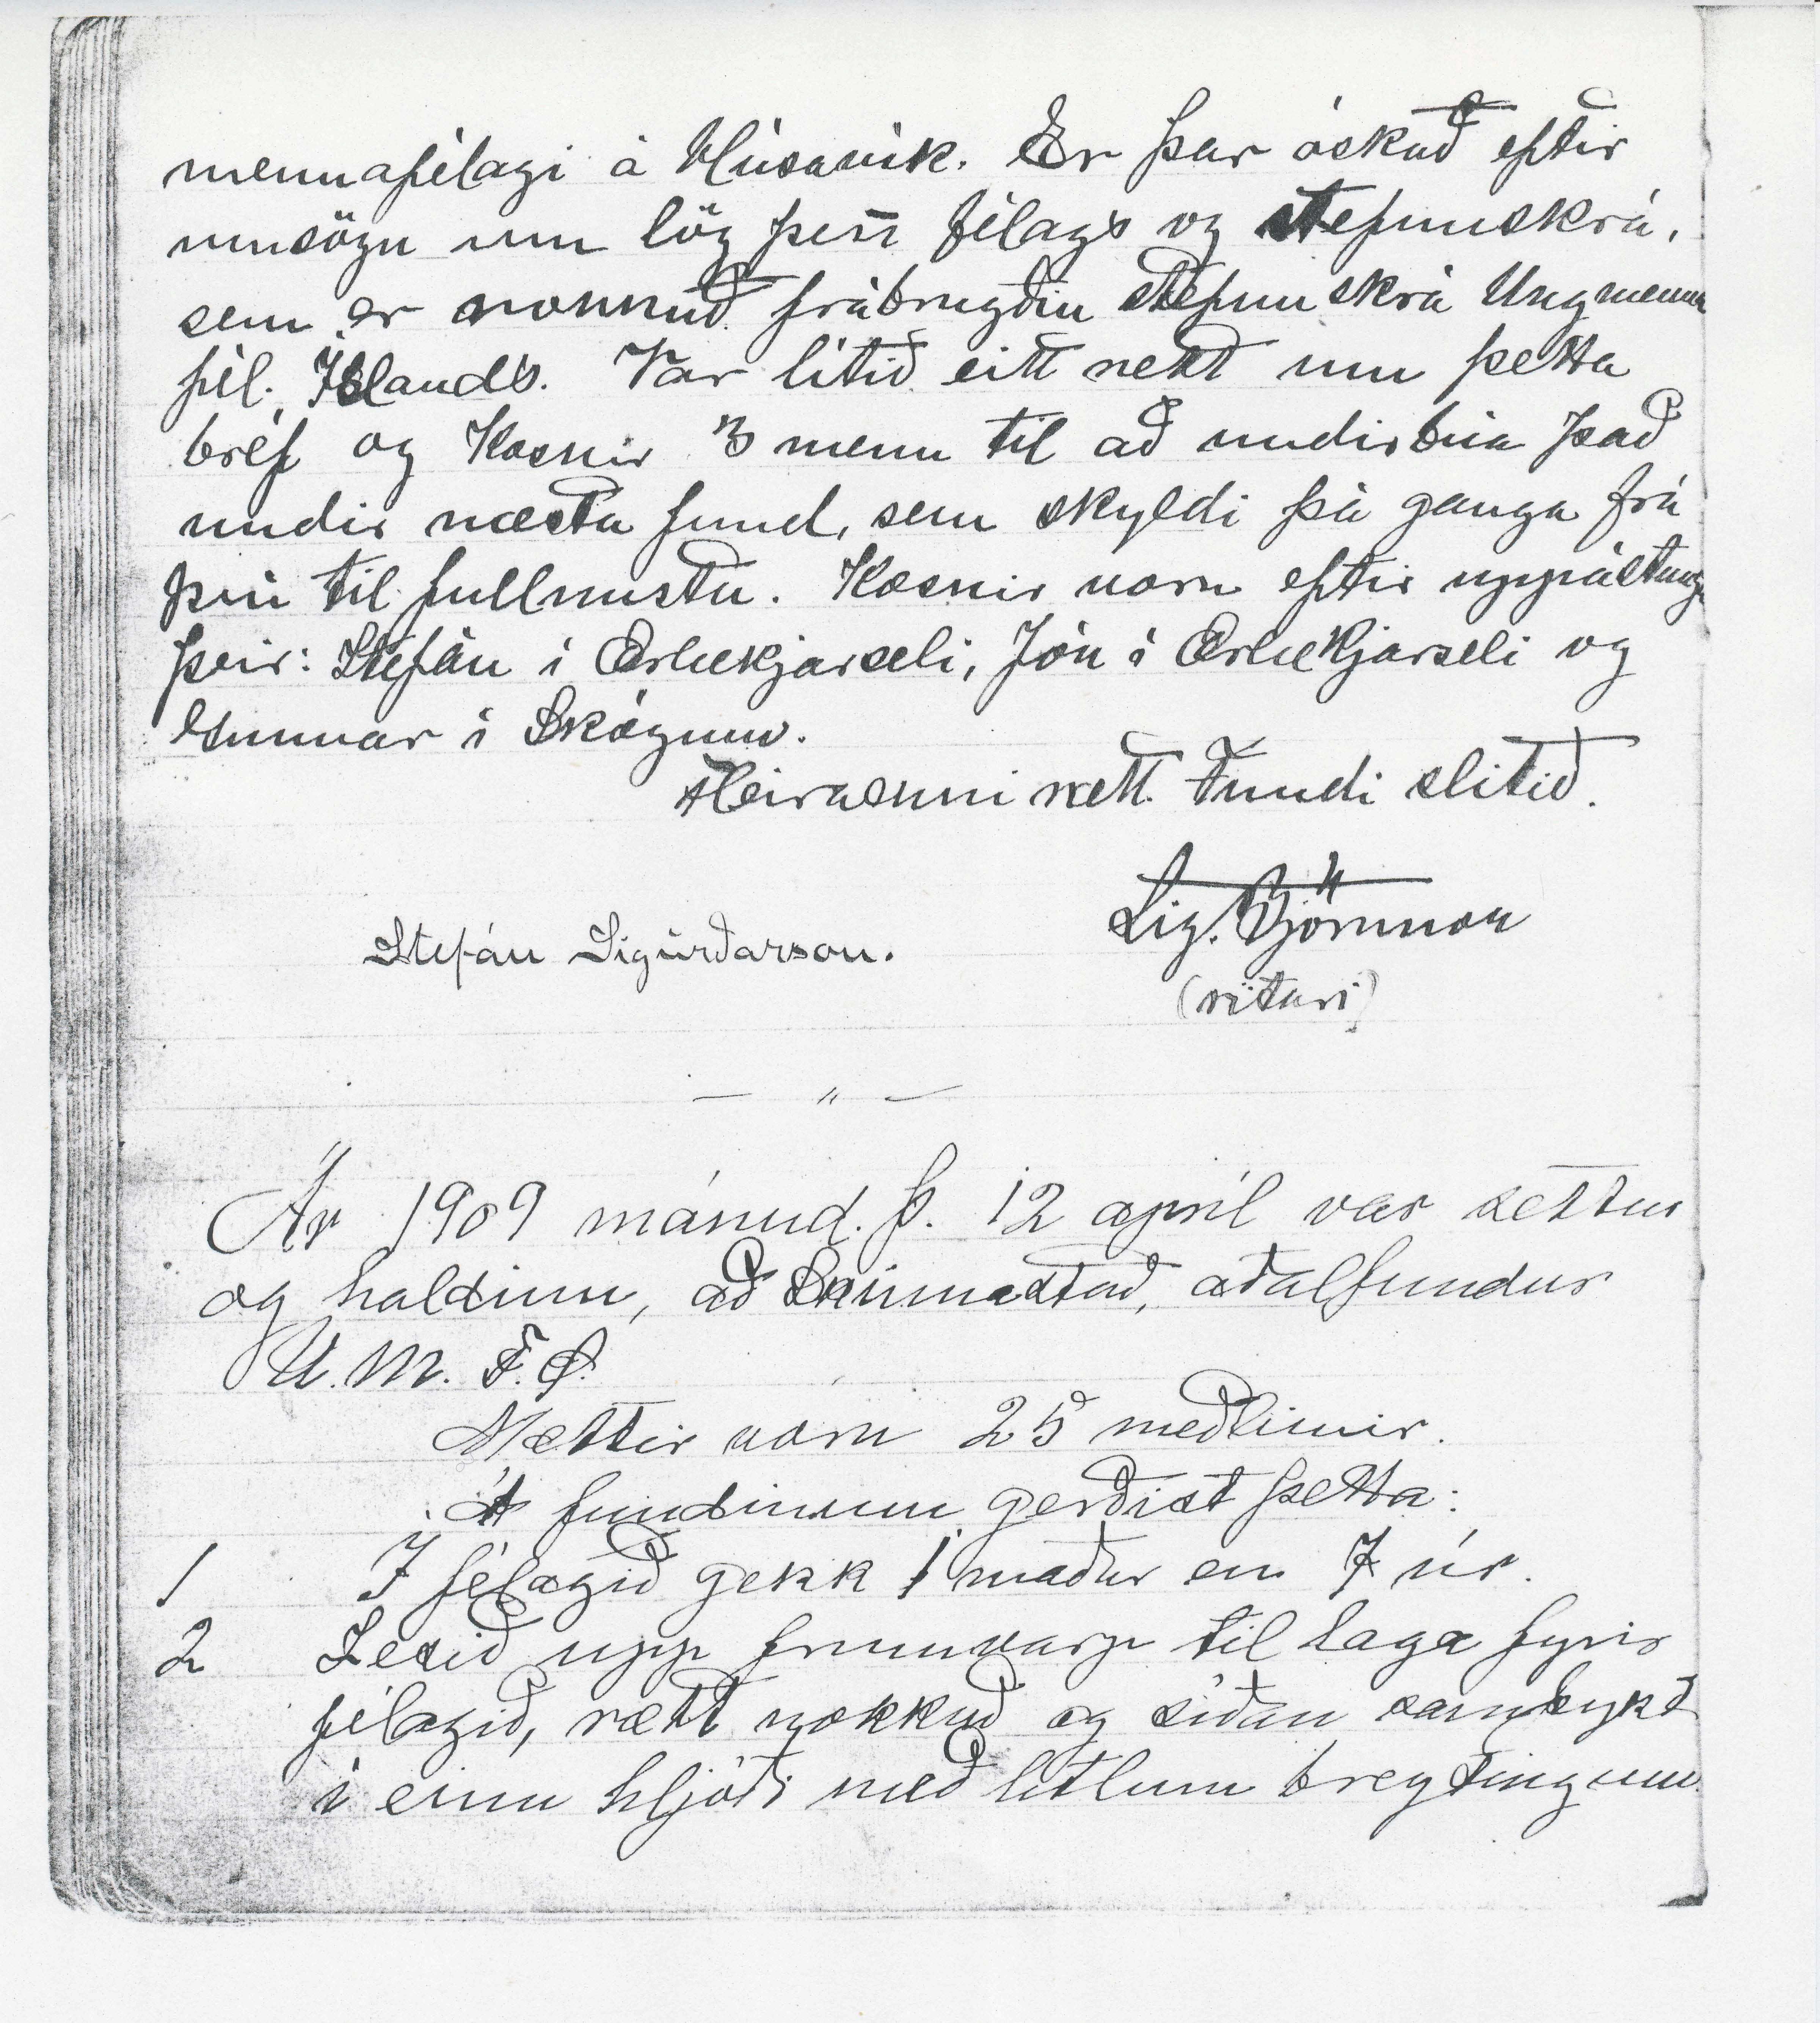 mennafélagi á Húsavík. Er þar óskað eftir
umsögn um lög þess félags og stefnuskrá,
sem er nokkuð frábrugðin stefnuskrá Ungmenna
fél. Íslands. Var lítið eitt rætt um þetta
bréf og kosnir 3 menn til að undirbúa það
undir næsta fund, sem skyldi þá ganga frá
því til fullnustu. Kosnir voru eftir uppástung
þeir: Stefán í Ærlækjarseli, Jón í Ærlækjarseli og
Gunnar í Skógum.
Fleira ekki rætt. Fundi slitið.
Sig. Björnsson
Stefán Sigurðarson.
(ritari)
— " —
Ár 1909 mánud. þ. 12 apríl var settur
og haldinn, að Skinnastað, aðalfundur
U. M. F. Ö.
Mættir voru 25 meðlimir.
Á fundinum gerðist þetta:
1 Í félagið gekk 1 maður en 7 úr.
2 Lesið upp frumvarp til laga fyrir
félagið, rætt nokkuð og síðan samþykt
í einu hljóði með litlum breytingum.